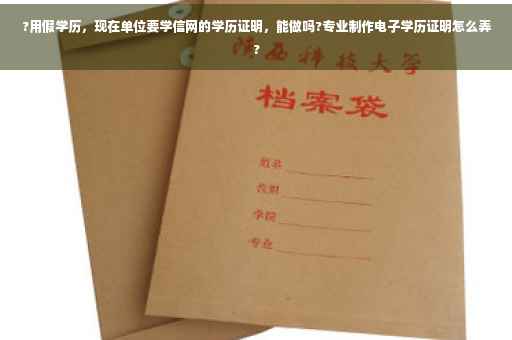 ?用假学历，现在单位要学信网的学历证明，能做吗?专业制作电子学历证明怎么弄
?
科技大学
档案袋
姓名
学院
专业